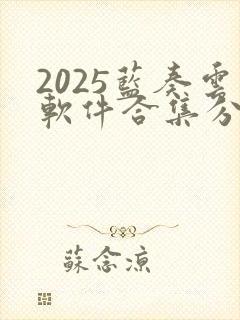 2025藍奏雲
軟件合集分
蘇念涼